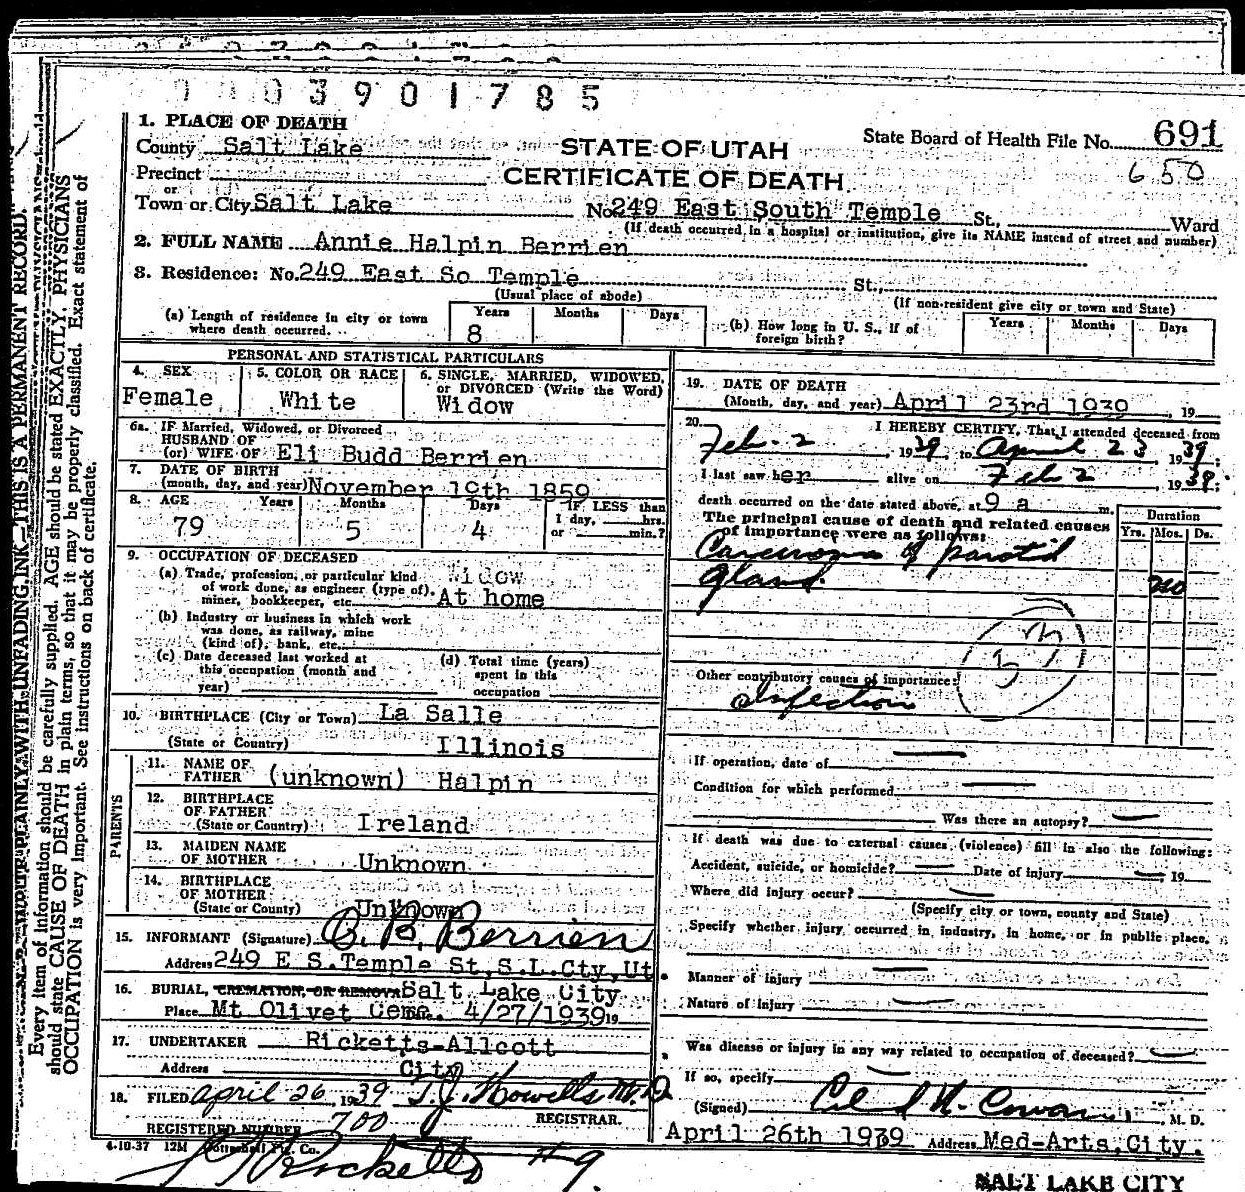 3901785
1. PLACE OF DEATH
State Board of Health File No. 691
County Salt Lake
STATE OF UTAH
650
Precinct
CERTIFICATE OF DEATH
or
Town or City Salt Lake No. 249 East South Temple St., Ward
(If death occurred in a hospital or institution, give its NAME instead of street and number)
2. FULL NAME Annie Halpin Berrien
3. Residence: No. 249 East So Temple St.,
(Usual place of abode) (If non-resident give city or town and State)
(a) Length of residence in city or town where death occurred. Years 8 Months Days
(b) How long in U. S., if of foreign birth? Years Months Days
PERSONAL AND STATISTICAL PARTICULARS
4. SEX Female
5. COLOR OR RACE White
6. SINGLE, MARRIED, WIDOWED, or DIVORCED (Write the Word) Widow
6a. IF Married, Widowed, or Divorced
HUSBAND OF
(or) WIFE OF Eli Budd Berrien
7. DATE OF BIRTH
(month, day, and year) November 19th 1859
8. AGE Years 79 Months 5 Days 4 IF LESS than 1 day, hrs. or min.?
9. OCCUPATION OF DECEASED
(a) Trade, profession, or particular kind Widow
of work done, as engineer (type of), At home
miner, bookkeeper, etc.
(b) Industry or business in which work
was done, as railway, mine
(kind of), bank, etc.
(c) Date deceased last worked at
this occupation (month and
year)
(d) Total time (years)
spent in this
occupation
10. BIRTHPLACE (City or Town) La Salle
(State or Country) Illinois
PARENTS
11. NAME OF
FATHER (unknown) Halpin
12. BIRTHPLACE
OF FATHER
(State or Country) Ireland
13. MAIDEN NAME
OF MOTHER Unknown
14. BIRTHPLACE
OF MOTHER
(State or County) Unknown
15. INFORMANT (Signature) B. Berrien
Address 249 E S.Temple St,S.L.Cty,Ut.
16. BURIAL, CREMATION, OR REMOVAL Salt Lake City
Place Mt Olivet Ceme. 4/27/1939 19
17. UNDERTAKER Ricketts-Allcott
Address City
18. FILED April 26, 1939 T.J. Howells M.D.
REGISTRAR.
REGISTERED NUMBER 700
4-10-37 12M Co.
Ricketts #9.
19. DATE OF DEATH
(Month, day, and year) April 23rd 1939, 19
20. I HEREBY CERTIFY, That I attended deceased from
Feb. 2, 1939, to April 23, 1939.
I last saw her alive on Feb 2, 1939;
death occurred on the date stated above, at 9 a m.
The principal cause of death and related causes
of importance were as follows:
Duration
Yrs. Mos. Ds.
Carcinoma of parotid
gland.
Other contributory causes of importance:
Infection
If operation, date of
Condition for which performed
Was there an autopsy?
If death was due to external causes (violence) fill in also the following:
Accident, suicide, or homicide? Date of injury , 19
Where did injury occur?
(Specify city or town, county and State)
Specify whether injury occurred in industry, in home, or in public place.
Manner of injury
Nature of injury
Was disease or injury in any way related to occupation of deceased?
If so, specify
(Signed) H. Cowan, M. D.
April 26th 1939 Address Med-Arts,City.
SALT LAKE CITY
WRITE PLAINLY, WITH UNFADING INK—THIS IS A PERMANENT RECORD.
Every item of information should be carefully supplied. AGE should be stated EXACTLY. PHYSICIANS
should state CAUSE OF DEATH in plain terms, so that it may be properly classified. Exact statement of
OCCUPATION is very important. See instructions on back of certificate.